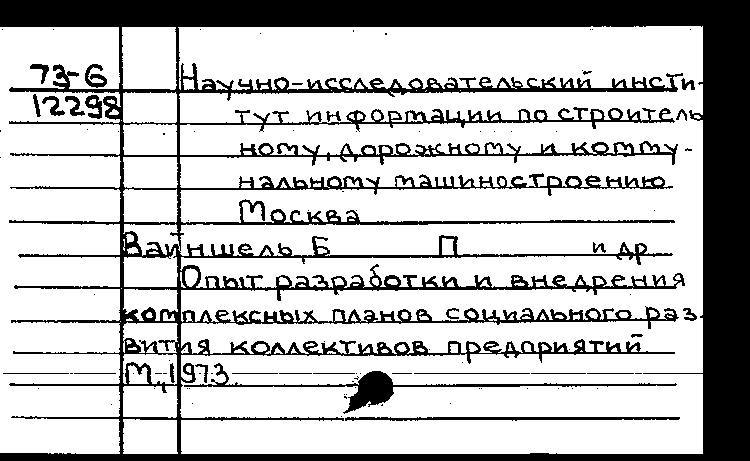 73-6 Научно-исследовательский инсти-
12298 тут информации по строитель
ному, дорожному и комму-
нальному машиностроению
Москва
Вайншель, Б П и др
Опыт разработки и внедрения
комплексных планов социального раз-
вития коллективов предприятий
М., 1973